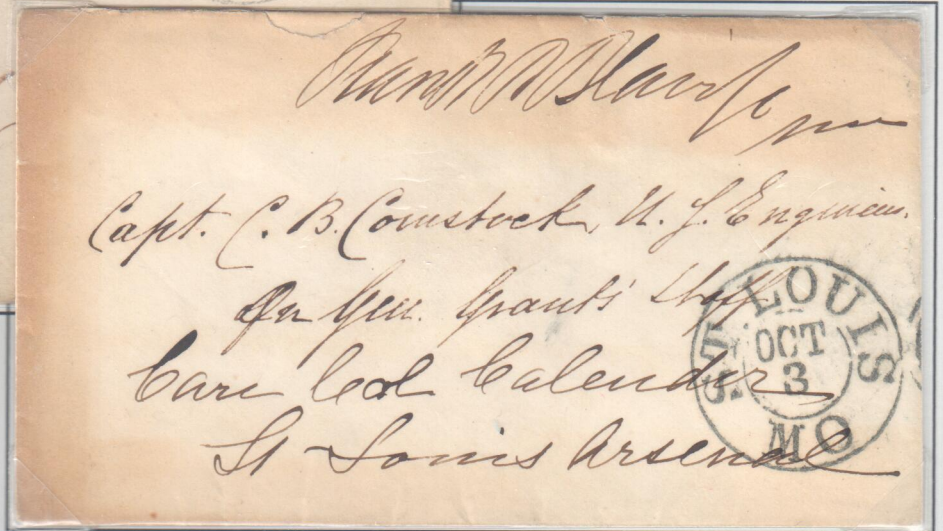 Frank P Blair Jr
Capt. C. B. Comstock, U. S. Engineers.
On Gen. Grants' Staff
Care Col Calender
St Louis Arsenal
ST LOUIS
OCT
3
MO